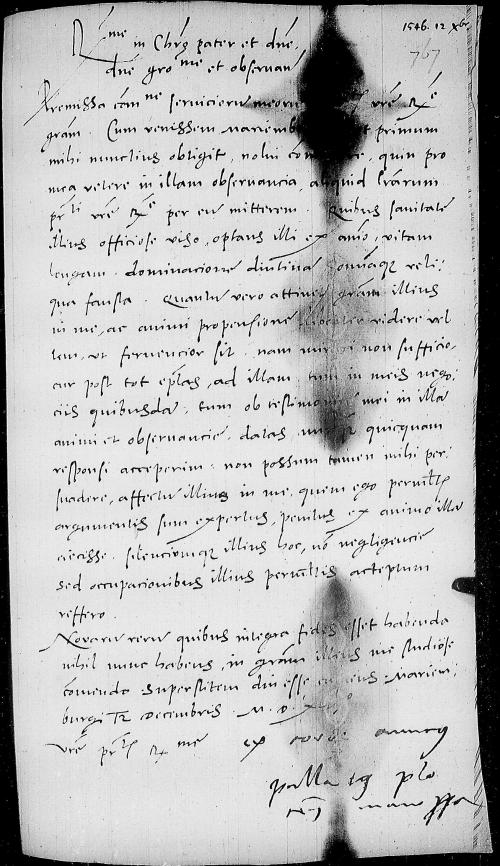 1546. 12 Xbr
767
R me in Chro pater et dne,
dne gro me et observan
Premissa com ne servicioru meoru vre R e
gram. Cum venissem Mariemb primum
mihi nunctius obtigit, nolui com, quin pro
mea vetere in illam observancia, aliquid lrarum
pr ti vre R e per eu mitterem. Quibus sanitate
illius officiose viso, optans illi ex anio, vitam
longam. dominacione diutina omniaqz reli:
qua fausta. Quantu vero attinet gram illius
in me, ac animi propensione, libenter videre vel
lem, ut fervencior sit. nam miror non suffitio,
cur post tot eplas, ad illam tum in meis nego:
ciis quibusda, tum ob testimoniu mei in illa
animi et observancie, datas, quicquam
responsi acceperim. non possum tamen mihi per:
suadere, affectu illius in me, quem ego permltis
argumentis sum expertus, penitus ex animo illa
eiecisse. silenciumqz illius hoc, no negligencie
sed occupacionibus illius permltis acceptum
reffero.
Novaru reru quibus integra fides esset habenda
nihil nunc habens, in gram illius me studiose
comendo superstitem diu esse cupiens. Marien:
burgi 12 Decembris. M. D.
vre pr ti R me ex corde amicus
manu ppa